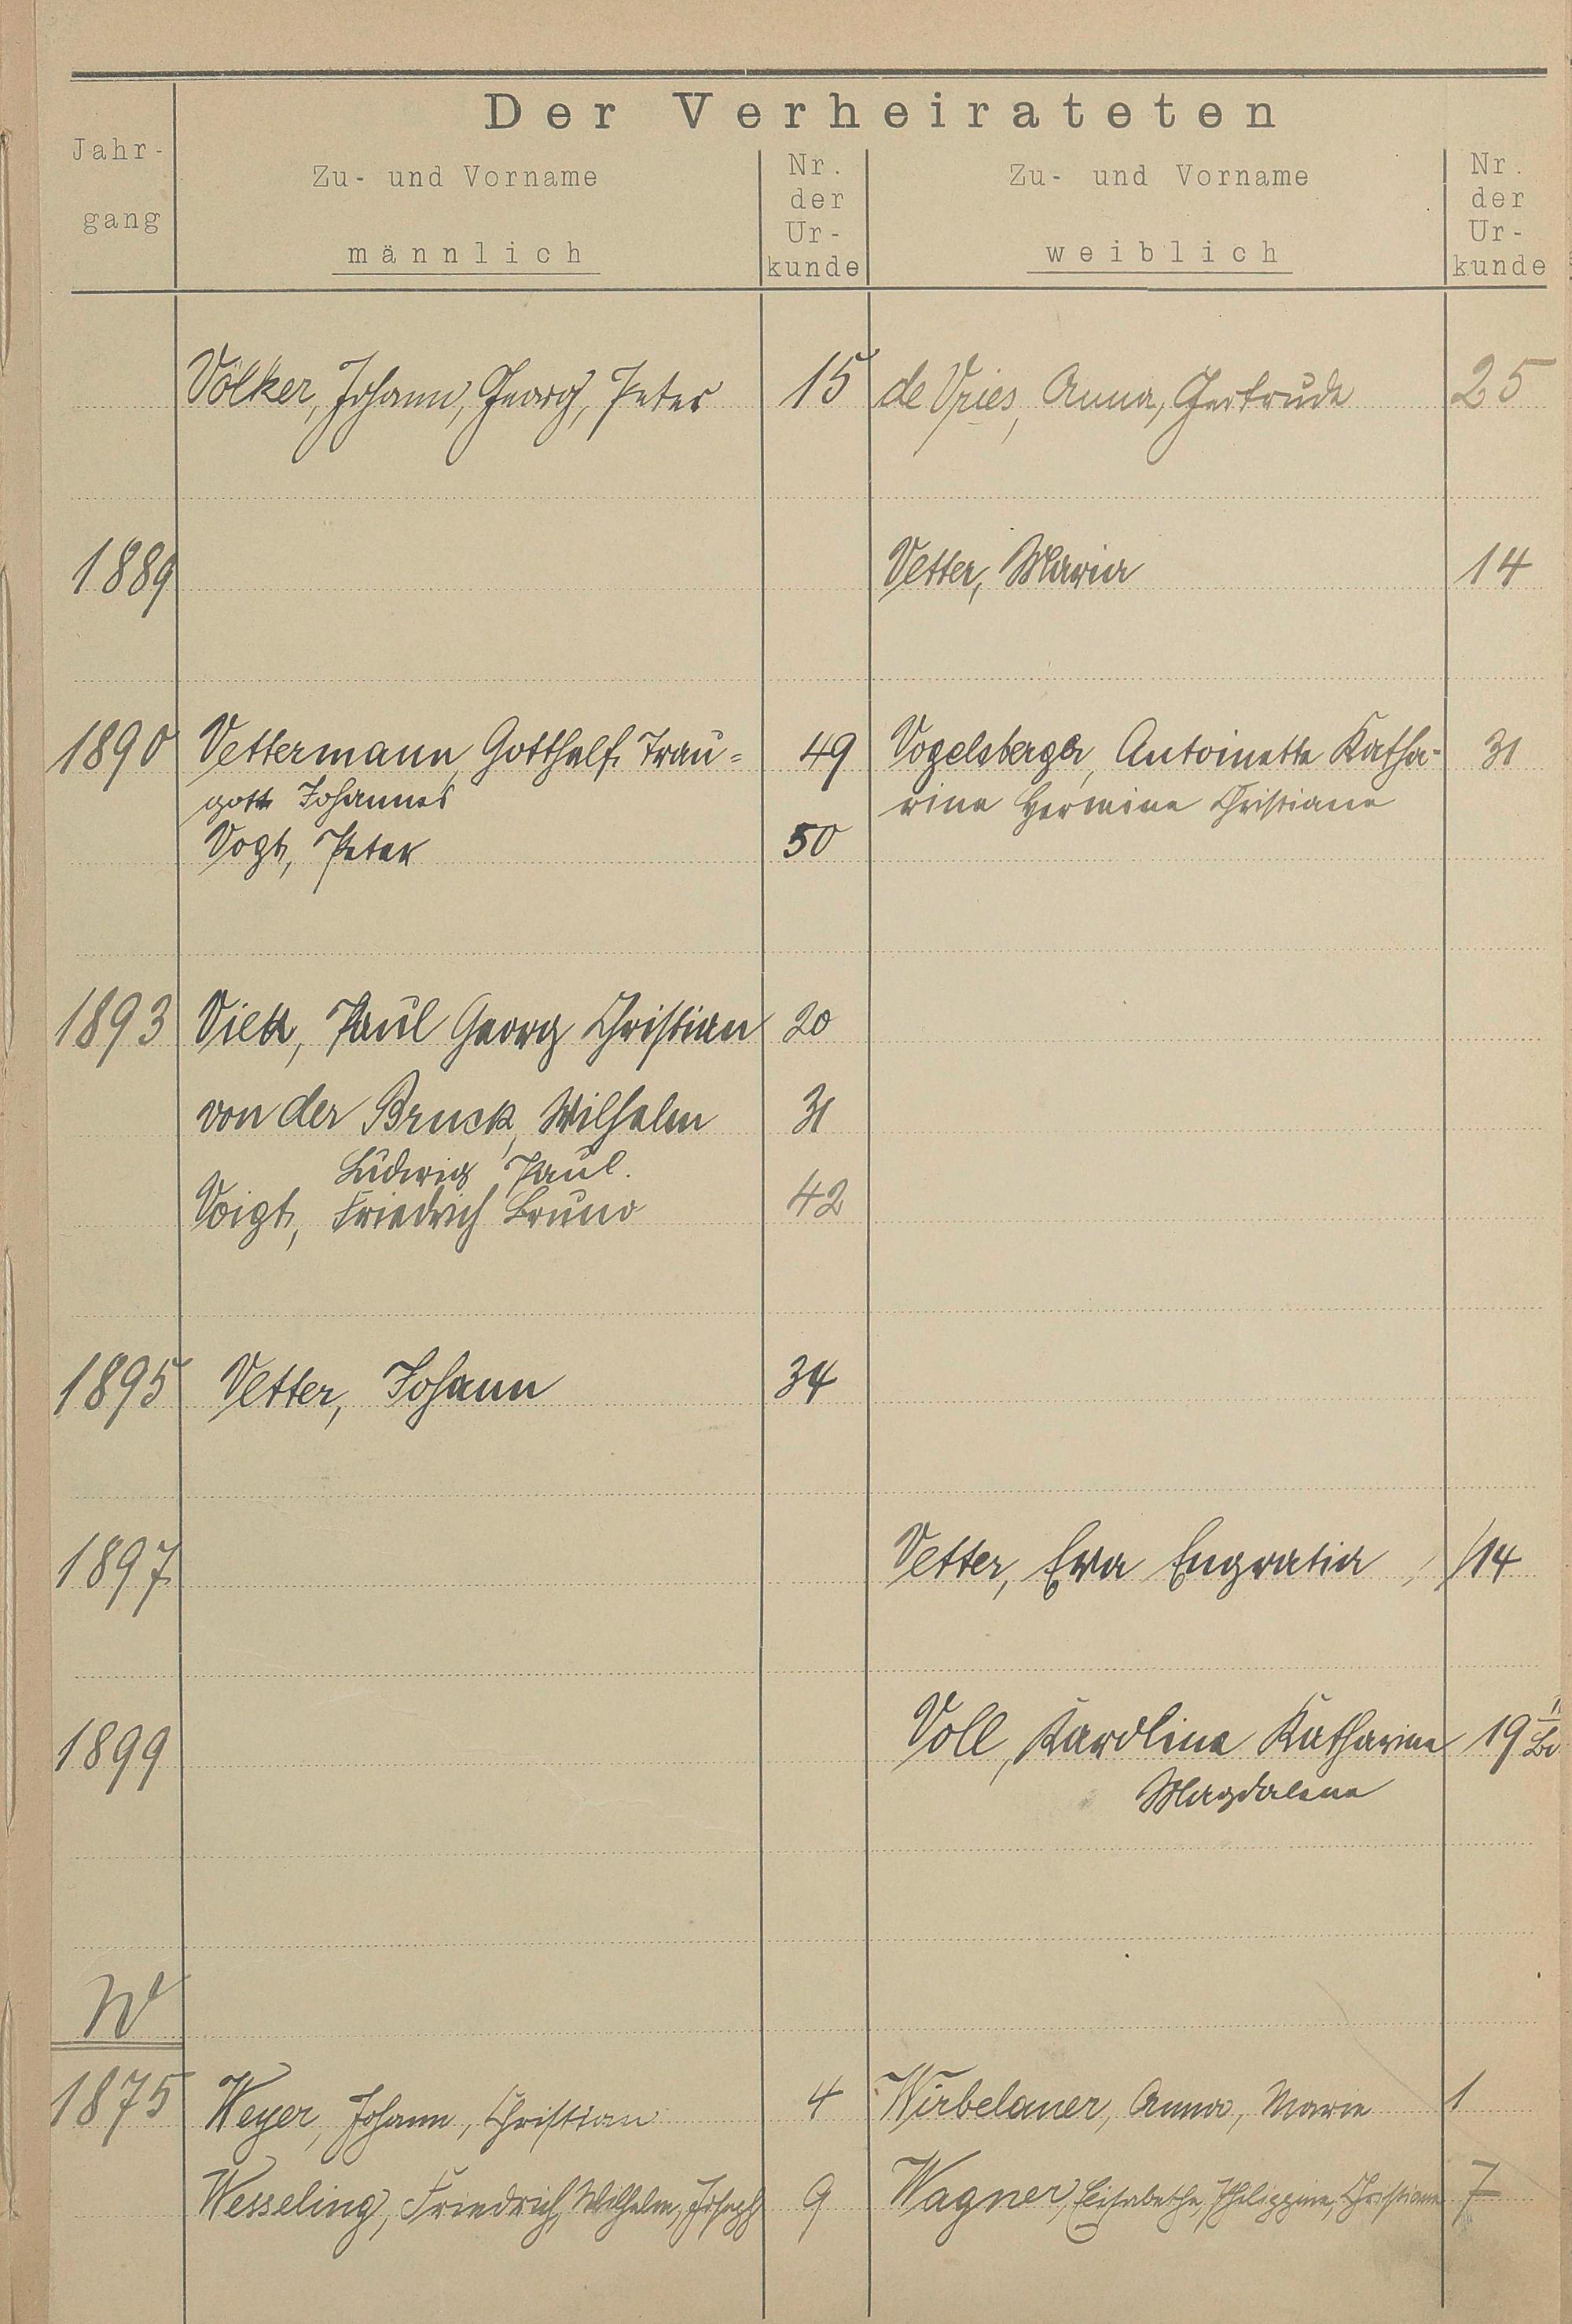 Der Verheirateten
Jahr-
gang
Zu- und Vorname
männlich
Nr.
der
Ur-
kunde
Zu- und Vorname
weiblich
Nr.
der
Ur-
kunde
Völker, Johann, Georg, Peter 15 de Vries, Anna, Gertrude 25
1889 Vetter, Maria 14
1890 Vettermann, Gotthelf Trau= 49 Vogelsberger, Antoinette Katha- 31
gott Johannes rine Hermine Christiane
Vogt, Peter 50
1893 Viek, Paul Georg Christian 20
von der Bruck, Wilhelm 31
Ludwig Paul.
Voigt, Friedrich Bruno 42
1895 Vetter, Johann 34
1897 Vetter, Eva Engratia 14
1899 Voll, Karoline Katharine 19
Magdalene
W
1875 Weyer, Johann, Christian 4 Wirbelauer, Anna, Marie 1
Wesseling, Friedrich, Wilhelm, Joseph 9 Wagner, Elisabethe, Philippine, Christiane 7